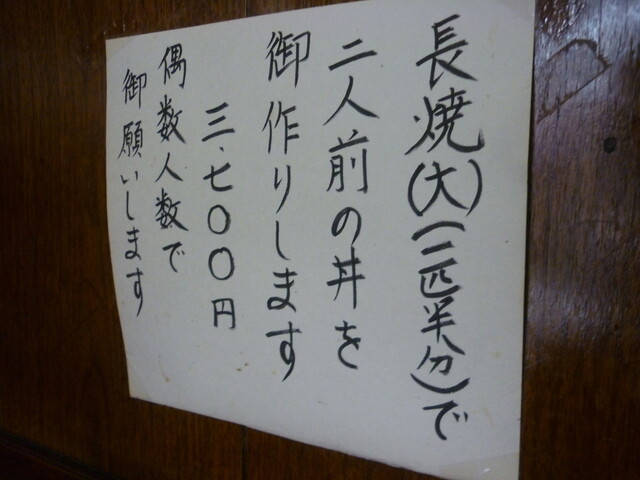 長焼(大)(一匹半分)で
二人前の丼を
御作りします
三、七〇〇円
偶数人数で
御願いします